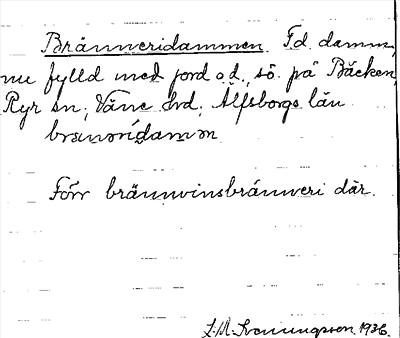 Bränneridammen. F.d. damm,
nu fylld med jord o.d., sö. på Bäcken,
Ryr sn, Väne hd, Älfsborgs län
Förr brännvinsbränneri där.
1936.